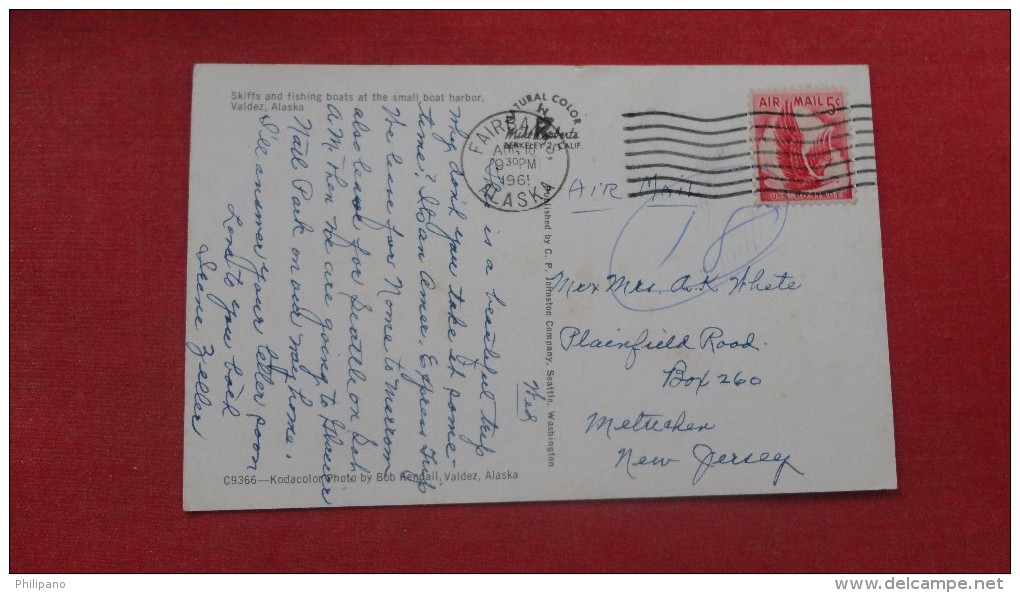 Skiffs and fishing boats at the small boat harbor,
Valdez, Alaska
NATURAL COLOR
Mike Roberts
BERKELEY 2, CALIF.
FAIRBANKS,
AUG 16
9 30 PM
1961
ALASKA
AIR MAIL 5¢
U.S. POSTAGE
AIR MAIL
18
Wed
is a beautiful trip
Why don't you take it some-
time? It's an Amer. Express Trip
We leave for Nome to-morrow
also leave for Seattle on Sat.
A.M. Then we are going to Glacier
Natl. Park on our way home.
I'll answer your letter soon
Love to you both
Irene Zeller
Mr & Mrs. A.K. White
Plainfield Road
Box 260
Metuchen
New Jersey
Published by C. P. Johnston Company, Seattle, Washington
C9366—Kodacolor Photo by Bob Kendall, Valdez, Alaska
Philipano
www.delcampe.net